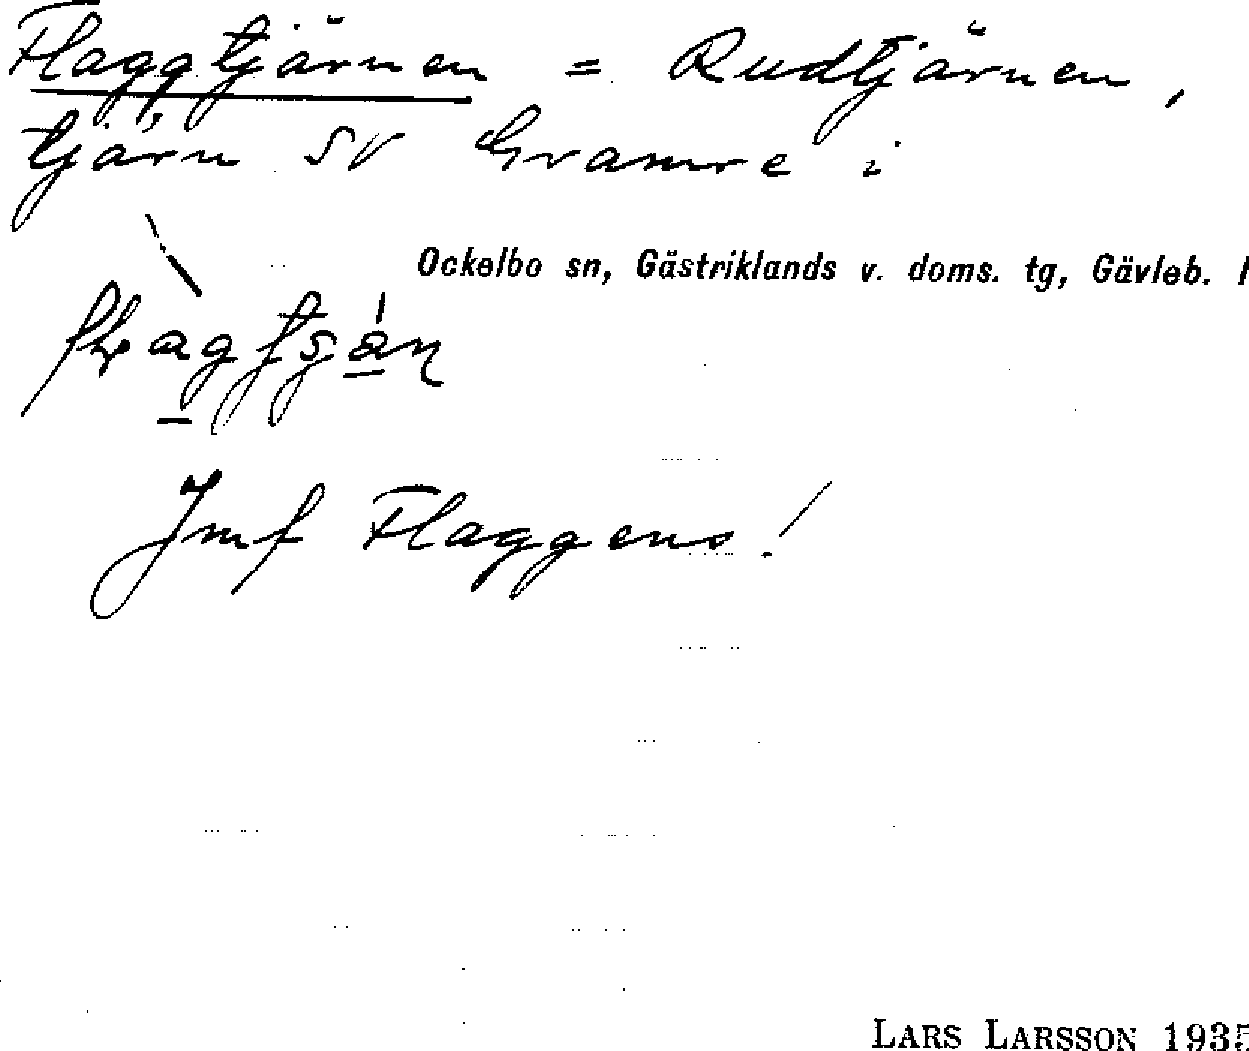 Flaggtjärnen = Rudtjärnen,
tjärn SV Gvamre i
Ockelbo sn, Gästriklands v. doms. tg, Gävleb. l
Jmf Flaggens!
LARS LARSSON 1935